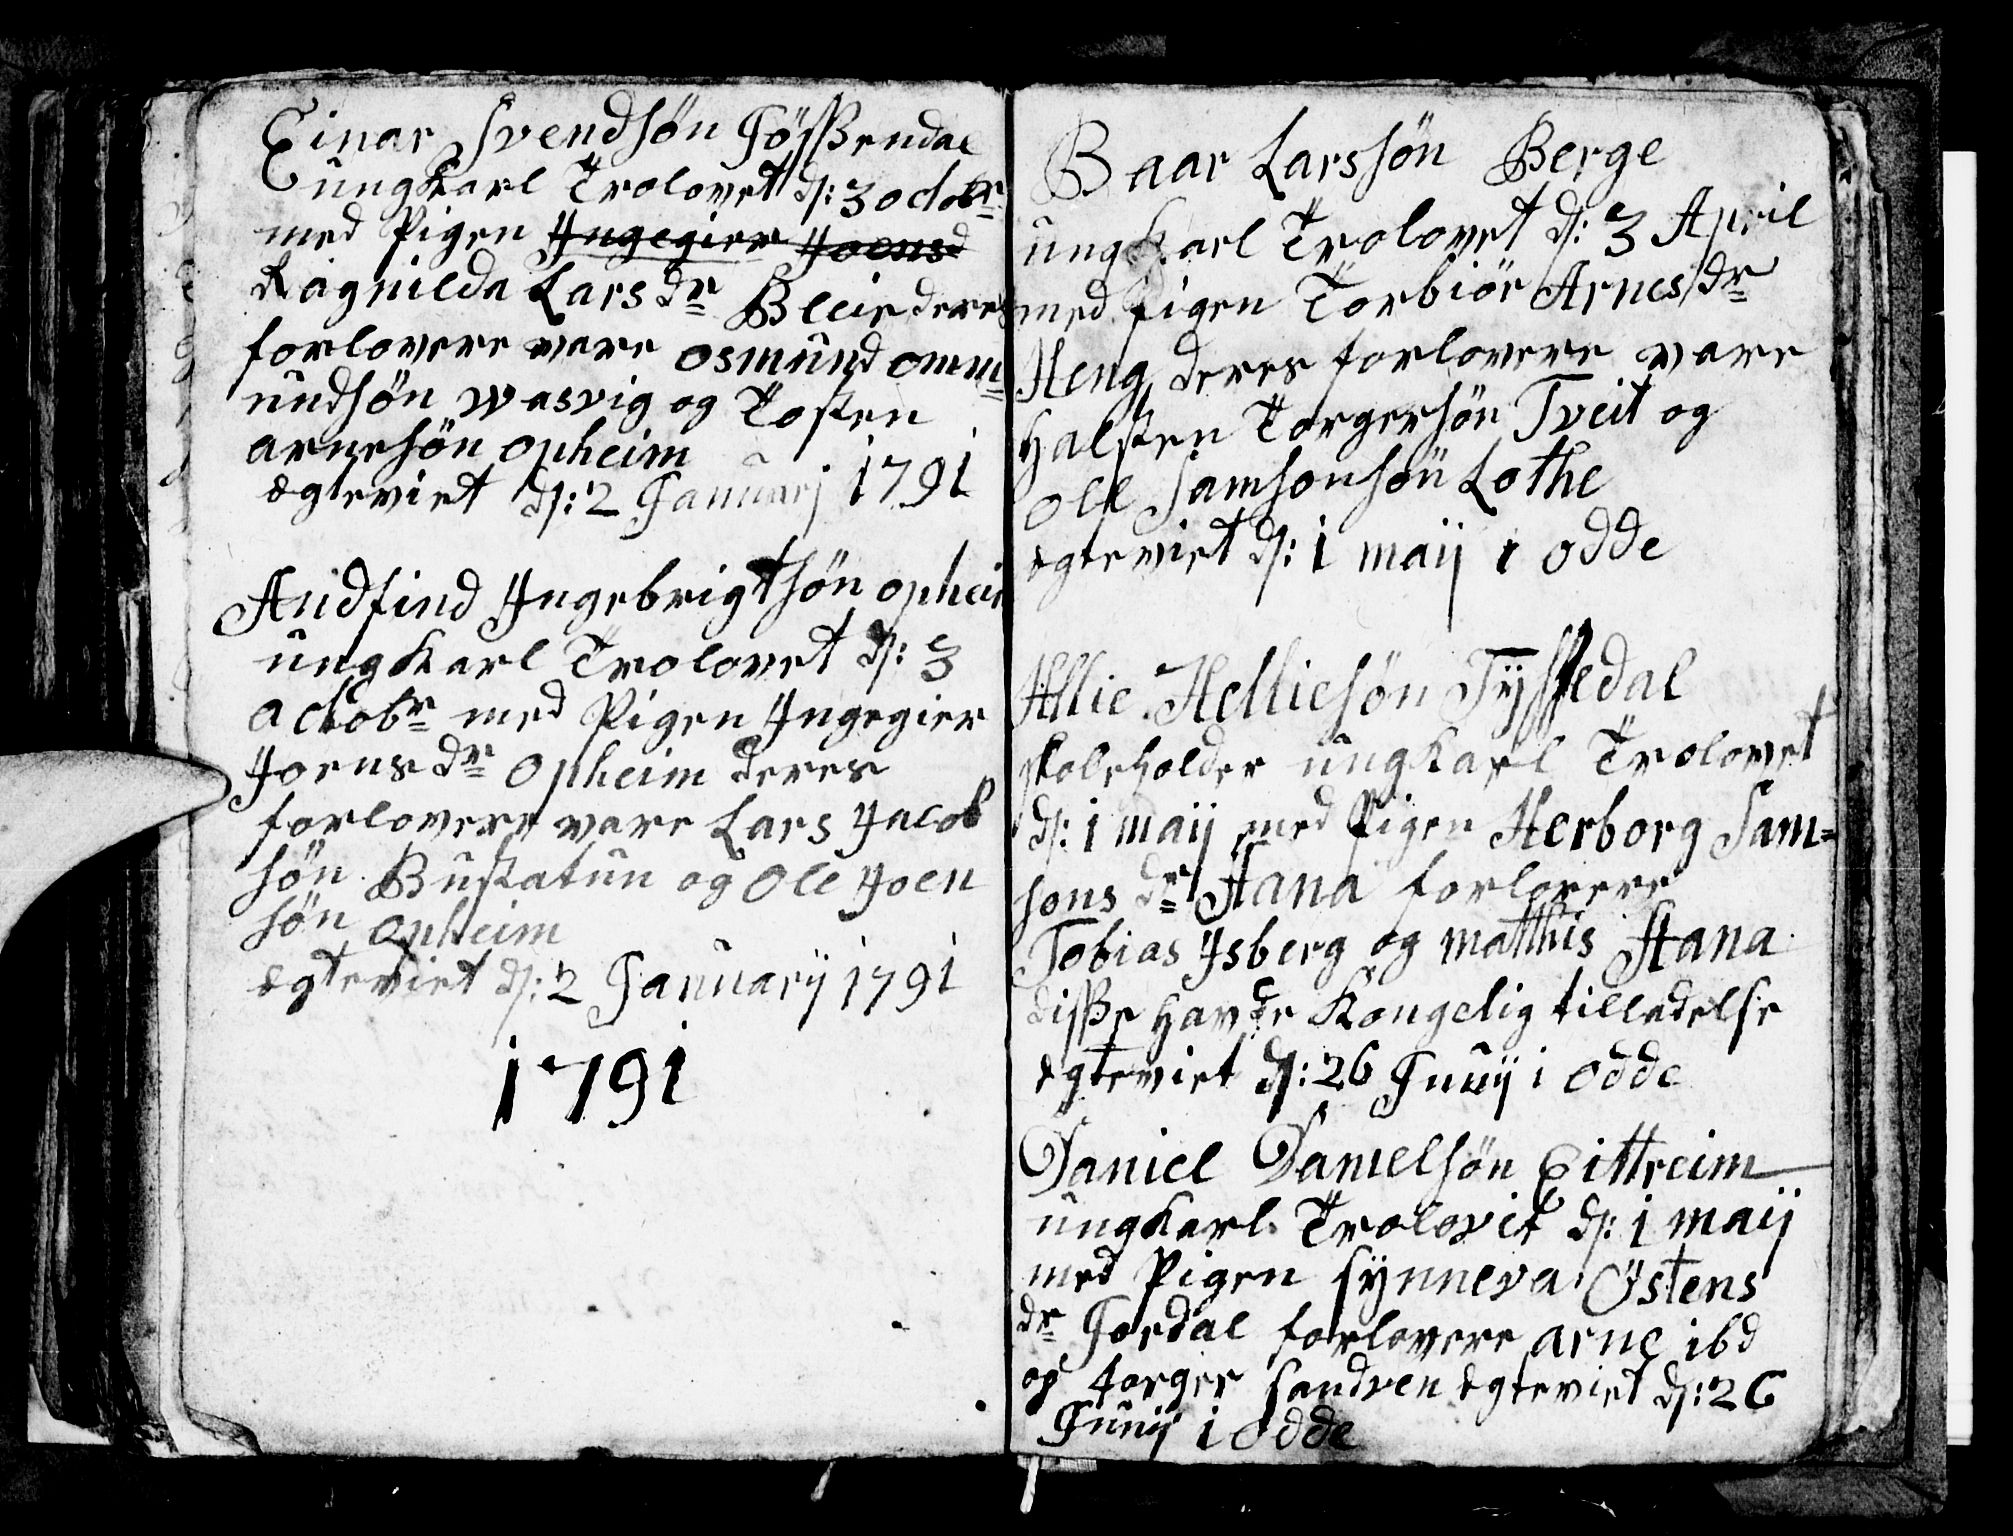 Einar Svendsøn Jøssendal
ungkarl Trolovet ds: 3 octobr
med Pigen Ingegier Joensd
Ragnilda Larsdr Bleie deres
forlovere vare Osmund omm=
undsøn Wasvig og Tosten
arnesøn opheim
egteviet ds: 2 January 1791
Andfind Ingebrigtsøn opheim
ungkarl Trolovet ds: 3
octobr med Pigen Ingegier
Joensdr opheim deres
forlovere vare Lars Jacob
søn Bustatun og Ole Joen
søn opheim
egteviet ds: 2 Januarij 1791
1791
Baar Larssøn Berge
ungkarl Trolovet ds: 3 April
med pigen Torbiør Arnesdr
Heng, deres forlovere vare
Halsten Torgersøn Tveit og
Ole Samsonsøn Lothe
egteviet ds: 1 maij i odde
Helliesøn Tyssedal
skoleholder ungkarl Trolovet
ds: 1 maij med Pigen Herborg Sam=
sons dr Aana forlovere
Tobias Isberg og matthis Aana
disse havde Kongelig tilladelse
egteviet ds: 26 Junij i odde
Daniel Danielsøn Eittreim
ungkarl Trolovet ds: 1 maij
med Pigen synneva Østens
dr Jordal forlovere arne ibd
og Torger sandven egteviet ds: 26
Junij i odde